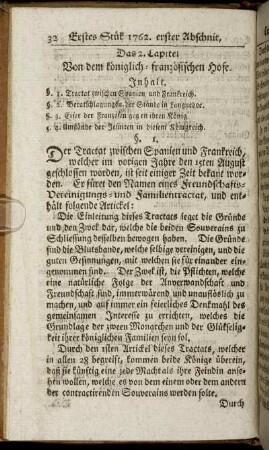 32 Erstes Stük 1762. erster Abschnit,
Das 2. Capitel
Von dem königlich-französischen Hofe.
Inhalt.
§. 1. Tractat zwischen Spanien und Frankreich.
§. 2. Berathschlagungen der Stände in Languedoc.
§. 3. Eifer der Franzosen gegen ihren König.
§. 4. Umstände der Jesuiten in diesem Königreich.
§. 1.
Der Tractat zwischen Spanien und Frankreich,
welcher im vorigen Jahre den 15ten August
geschlossen worden, ist seit einiger Zeit bekant wor-
den. Er füret den Namen eines Freundschafts-
Vereinigungs- und Familientractat, und ent-
hält folgende Artickel:
Die Einleitung dieses Tractats seget die Gründe
und den Zwek dar, welche die beiden Souverains zu
Schliessung desselben bewogen haben. Die Gründe
sind die Blutsbande, welche selbige vereinigen, und die
guten Gesinnungen, mit welchen sie für einander ein-
genommen sind. Der Zwek ist, die Pflichten, welche
eine natürliche Folge der Anverwandschaft und
Freundschaft sind, immerwärend und unauflöslich zu
machen, und auf immer ein feierliches Denkmahl des
gemeinsamen Interesse zu errichten, welches die
Grundlage der zween Monarchen und der Glükselig-
keit ihrer königlichen Familien seyn sol.
Durch den 1sten Artickel dieses Tractats, welcher
in allen 28 begreift, kommen beide Könige überein,
daß sie künftig eine jede Macht als ihre Feindin anse-
hen wollen, welche es von dem einem oder dem andern
der contractirenden Souverains werden solte.
Durch